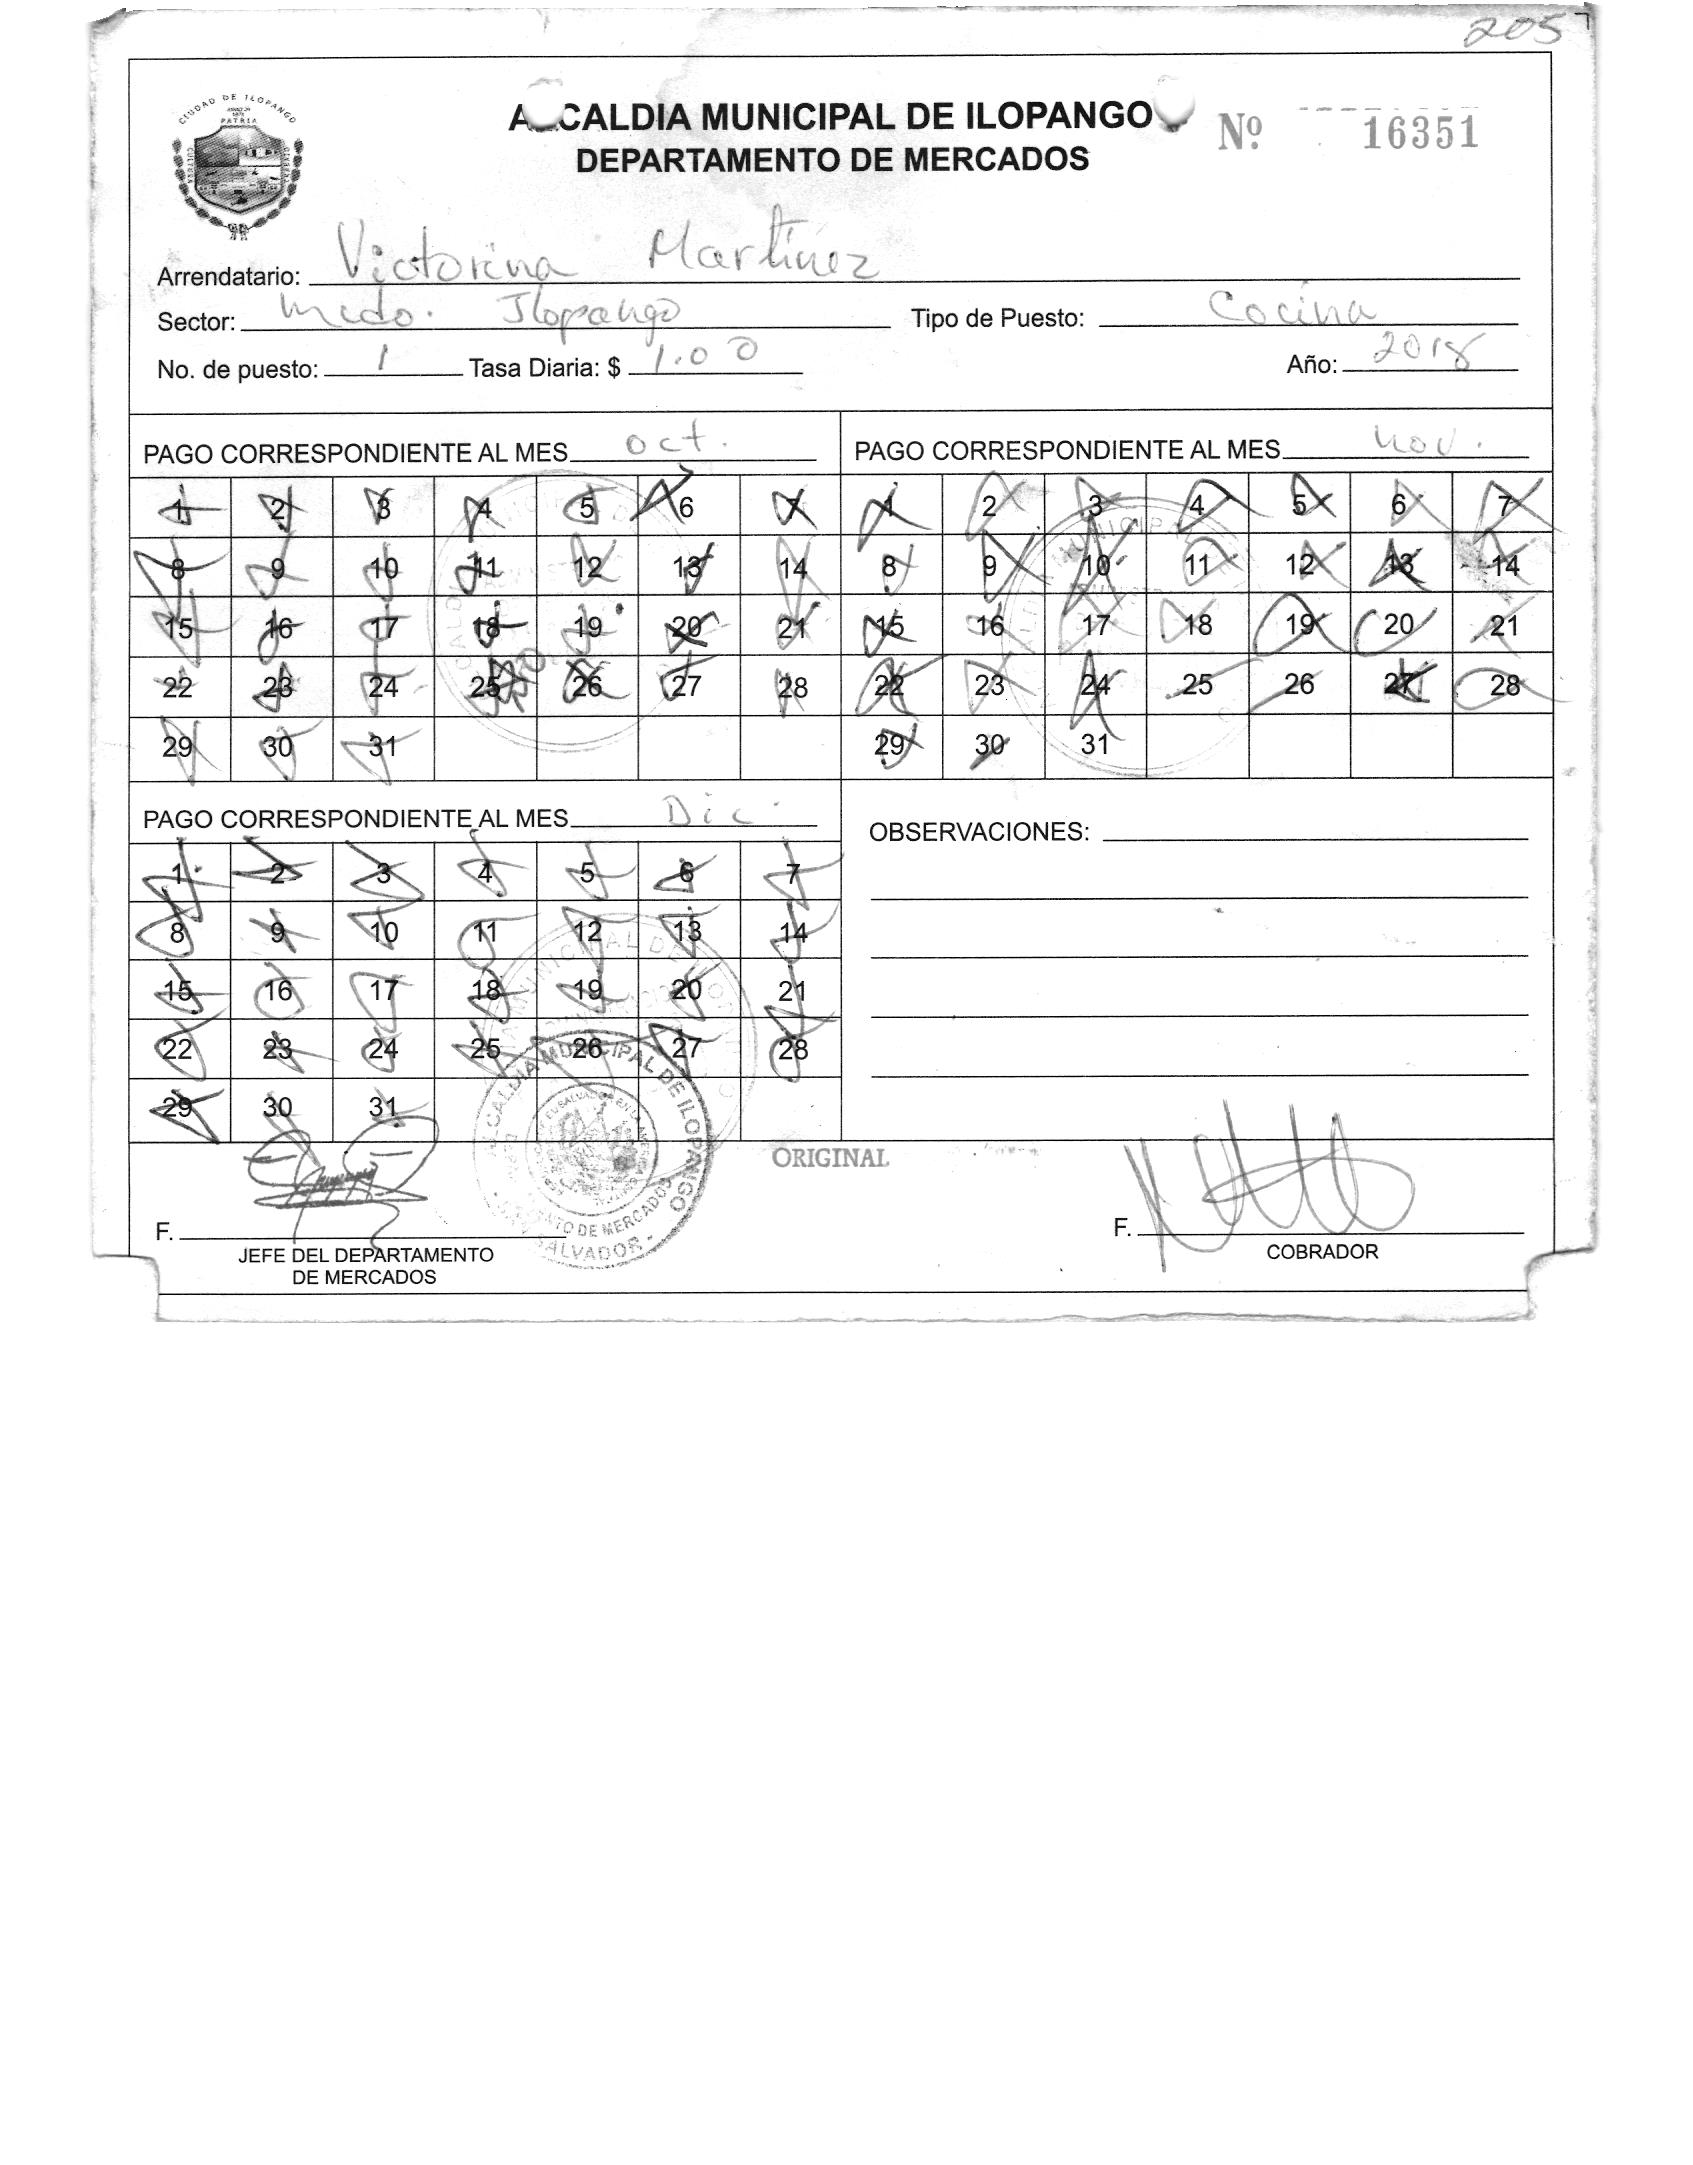 205
CIUDAD DE ILOPANGO
PATRIA
ALCALDIA MUNICIPAL DE ILOPANGO
Nº 16351
DEPARTAMENTO DE MERCADOS
Arrendatario: Victorina Martinez
Sector: Mcdo. Ilopango Tipo de Puesto: Cocina
No. de puesto: 1 Tasa Diaria: $ 1.00 Año: 2018
PAGO CORRESPONDIENTE AL MES oct.
1 2 3 4 5 6 7
8 9 10 11 12 13 14
15 16 17 18 19 20 21
22 23 24 25 26 27 28
29 30 31
PAGO CORRESPONDIENTE AL MES nov.
1 2 3 4 5 6 7
8 9 10 11 12 13 14
15 16 17 18 19 20 21
22 23 24 25 26 27 28
29 30 31
PAGO CORRESPONDIENTE AL MES Dic.
1 2 3 4 5 6 7
8 9 10 11 12 13 14
15 16 17 18 19 20 21
22 23 24 25 26 27 28
29 30 31
OBSERVACIONES:
ORIGINAL
ALCALDIA MUNICIPAL DE ILOPANGO
DE MERCADOS
SALVADOR
F.
JEFE DEL DEPARTAMENTO
DE MERCADOS
F.
COBRADOR